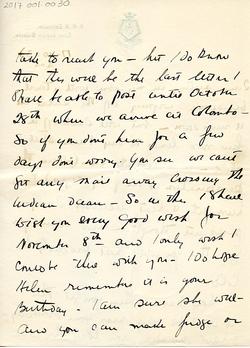 2017 001 0030
take to reach you – but I do know
that they will be the last letters I
shall be able to post until October
28th when we arrive at Colombo –
So if you don't hear for a few
days don't worry. You see we can't
get any mail away crossing the
Indian Ocean – So in this I shall
wish you every good wish for
November 8th and I only wish I
could be with you – I do hope
Helen remembers it is your
Birthday – I am sure she will –
and you can make fudge or